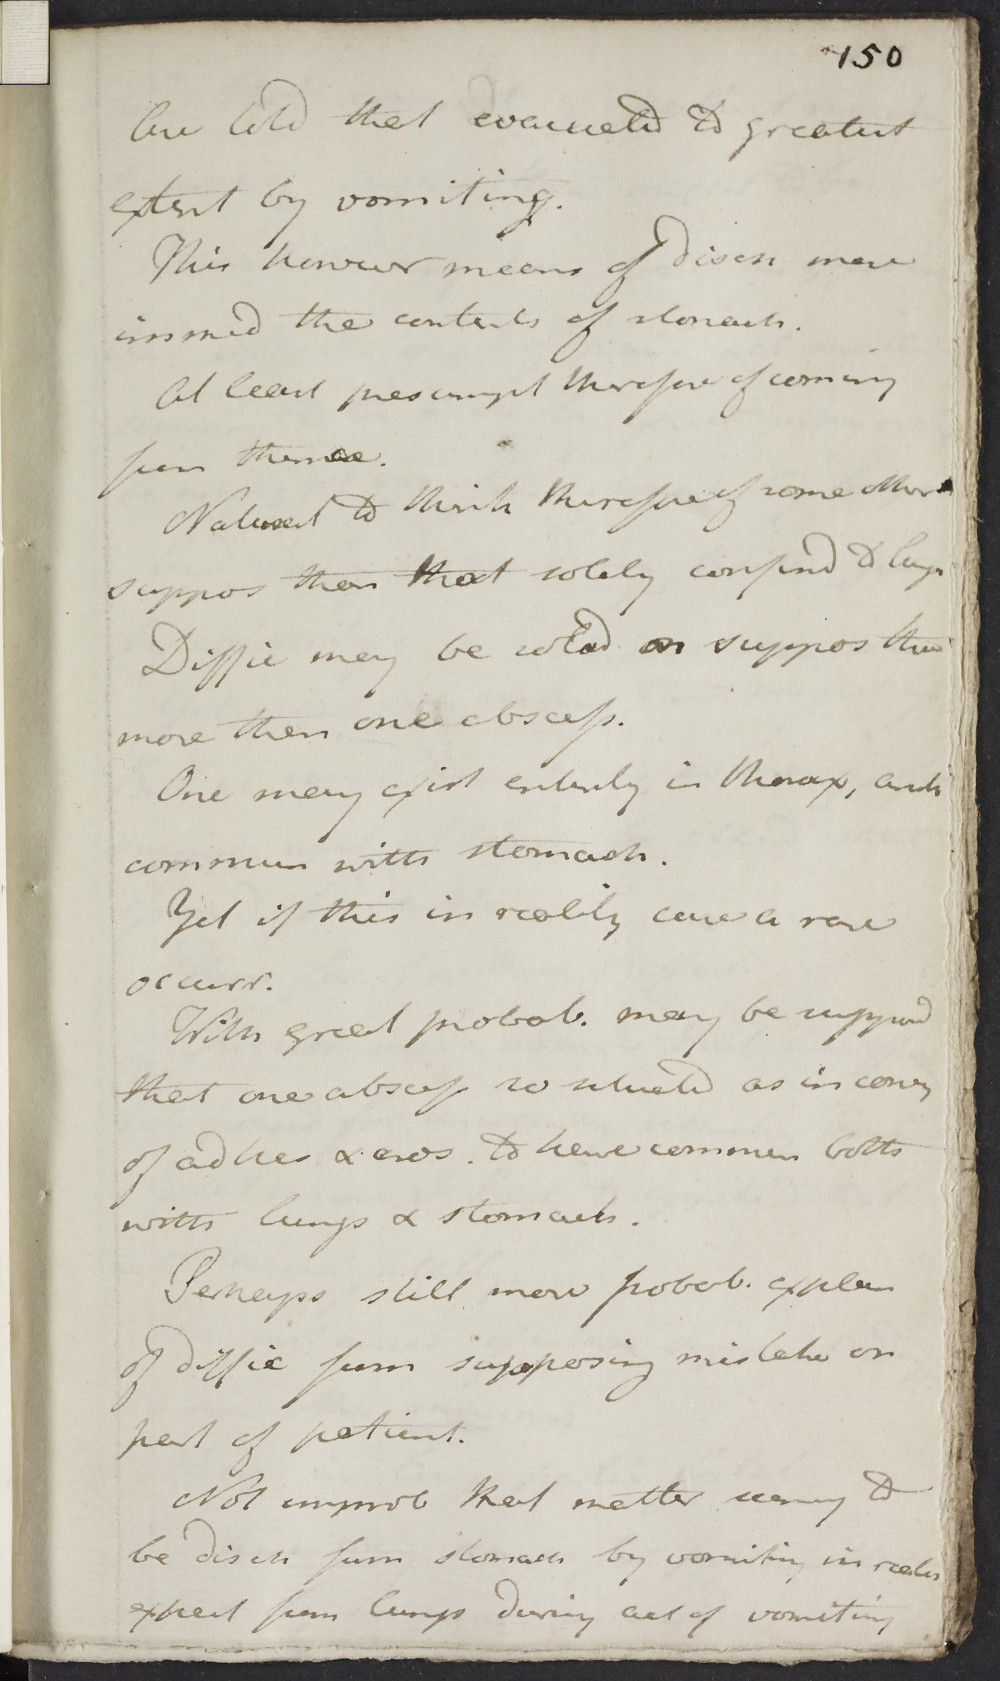 150
are told that evacuated to greatest
extent by vomiting.
This however means of disch mere
immed the contents of stomach.
At least presumpt therefore of coming
from thence.
Natural to think therefore of some other
suppos than that solely confind to lungs
Diffic may be solvd on suppos this
more then one abscess.
One may exist entirely in thorax, anoth
commun with stomach.
Yet if this in reality case a rare
occurr.
With great probab. may be supposd
that one abscess so situated as in conseq
of adhes & eros. to have commun both
with lungs & stomach.
Perhaps still more probab. explan
of diffic from supposing mistake on
part of patient.
Not improb that matter seeming to
be disch from stomach by vomiting in reality
expect from lungs during act of vomiting